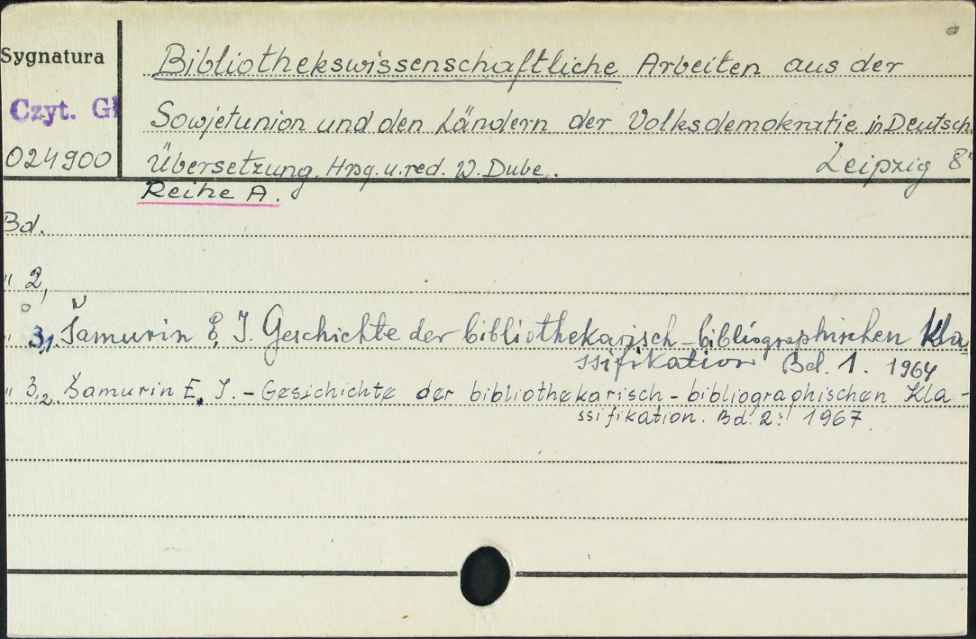 Sygnatura
Bibliothekswissenschaftliche Arbeiten aus der
Czyt. Gł
Sowjetunion und den Ländern der Volksdemokratie in Deutsch.
024900
Übersetzung. Hrsg. u. red. W. Dube. Leipzig 8°
Reihe A.
Bd.
" 2,
" 3,1. Šamurin E. I. Geschichte der bibliothekarisch-bibliographischen Kla
ssifikation Bd. 1. 1964
" 3,2. Šamurin E. I. - Geschichte der bibliothekarisch - bibliographischen Kla -
ssifikation. Bd. 2: 1967.